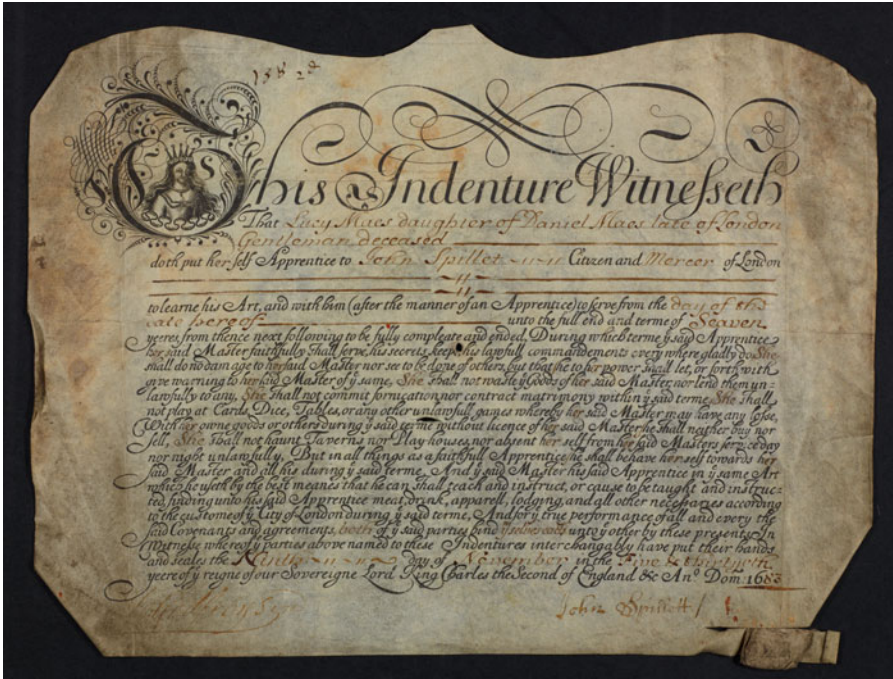 This Indenture Witnesseth
That Lucy Maes daughter of Daniel Maes late of London
Gentleman deceased
doth put her self Apprentice to John Spillet Citizen and Mercer of London
to learne his Art, and with him (after the manner of an Apprentice) to serve from the day of the
date hereof unto the full end and terme of Seaven
yeeres from thence next following to be fully compleate and ended, During which terme ẙ said Apprentice
her said Master faithfully shall serve, his secrets keep, his lawfull commandements every where gladly do, She
shall do no damage to her said Master nor see to be done of others, but that she to her power shall let, or forthwith
give warning to her said Master of ẙ same, She shall not waste ẙ Goods of her said Master, nor lend them un-
lawfully to any, She shall not commit fornication, nor contract matrimony within ẙ said terme, She shall
not play at Cards, Dice, Tables, or any other unlawfull games whereby her said Master may have any losse,
With her owne goods or others during ẙ said terme without licence of her said Master she shall neither buy nor
sell, She shall not haunt Taverns nor Play houses, nor absent her self from her said Masters service day
nor night unlawfully, But in all things as a faithfull Apprentice she shall behave her self towards her
said Master and all his during ẙ said terme, And ẙ said Master his said Apprentice in ẙ same Art
which he useth by the best meanes that he can shall teach and instruct, or cause to be taught and instruc-
ted, finding unto his said Apprentice meat, drink, apparell, lodging, and all other necessaries according
to the custome of ẙ City of London during ẙ said terme, And for ẙ true performance of all and every the
said Covenants and agreements, both of ẙ said parties bind unto ẙ other by these presents, In
Witness whereof ẙ parties above named to these Indentures interchangably have put their hands
and seales the Ninth day of November in the Five & thirtyeth
yeere of ẙ reigne of our Sovereigne Lord King Charles the Second of England &c Anº Dom: 1683
John